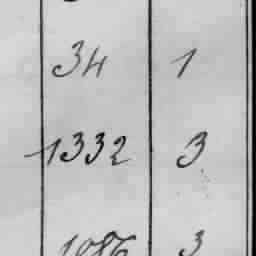 34 1
1332 3
1086 3